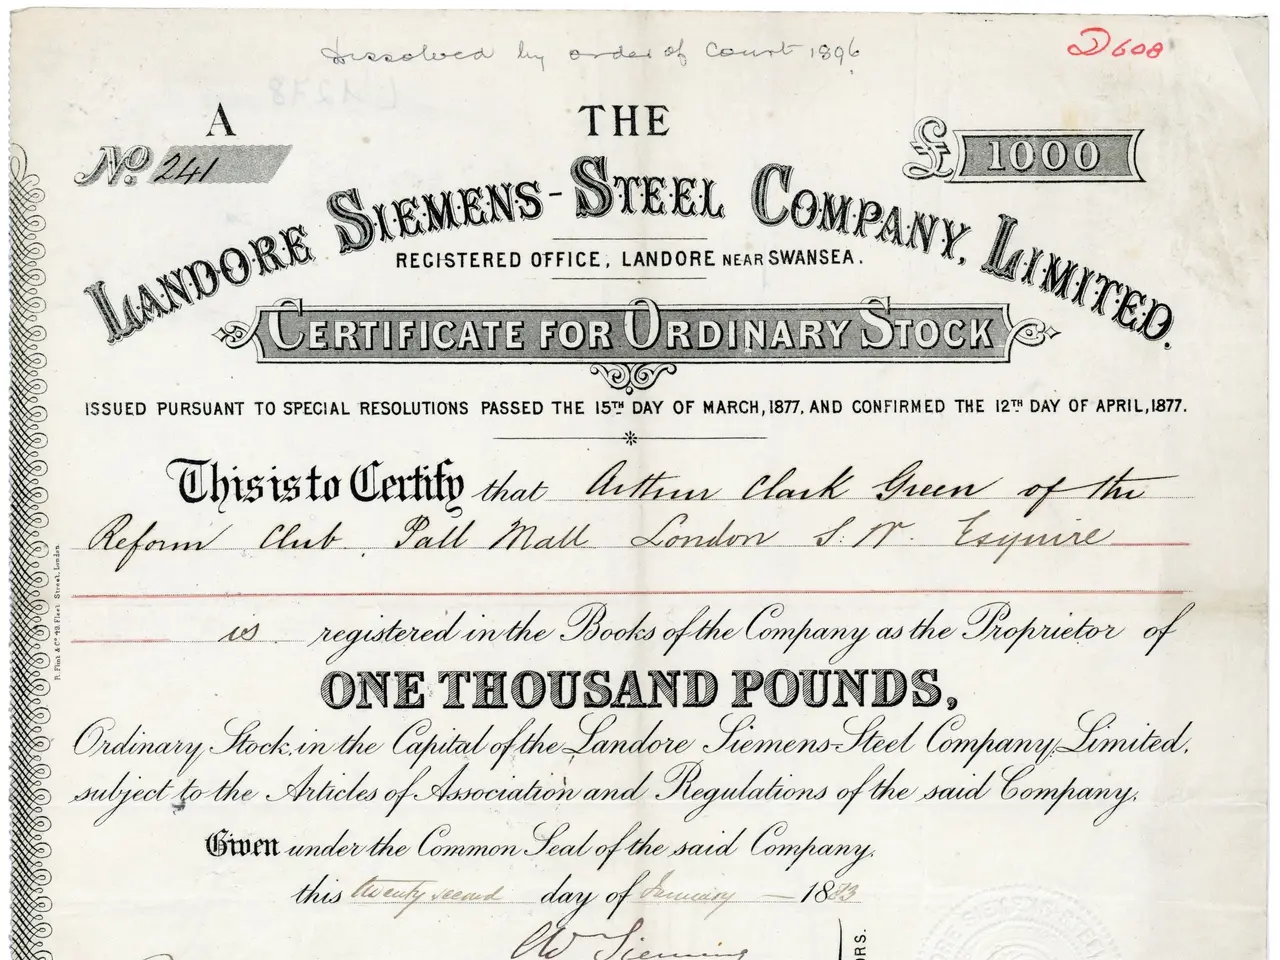 Dissolved by order of Court 1896
D608
A
THE
No. 241
£1000
LANDORE SIEMENS-STEEL COMPANY, LIMITED.
REGISTERED OFFICE, LANDORE NEAR SWANSEA.
CERTIFICATE FOR ORDINARY STOCK
ISSUED PURSUANT TO SPECIAL RESOLUTIONS PASSED THE 15TH DAY OF MARCH, 1877, AND CONFIRMED THE 12TH DAY OF APRIL, 1877.
This is to Certify that Arthur Clark Green of the
Reform Club, Pall Mall London S. W. Esquire
is registered in the Books of the Company as the Proprietor of
ONE THOUSAND POUNDS,
Ordinary Stock, in the Capital of the Landore Siemens-Steel Company, Limited,
subject to the Articles of Association and Regulations of the said Company.
Given under the Common Seal of the said Company,
this twenty second day of January 1883
CW Siemens
ORS.